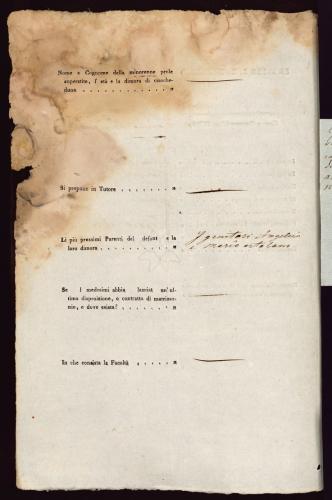 Nome e Cognome della minorenne prole
superstite, l' età e la dimora di ciasche-
duno . . . . . . . . . . . . "
Si propone in Tutore . . . . . . . "
Li più prossimi Parenti del defont e la
loro dimora . . . . . . . . . . "
I genitori Angelo
e Maria
Se i medesimi abbia lasciat un' ul-
tima disposizione, o contratto di matrimo-
nio, e dove esista? . . . . . . . "
In che consista la Facoltà . . . . . "